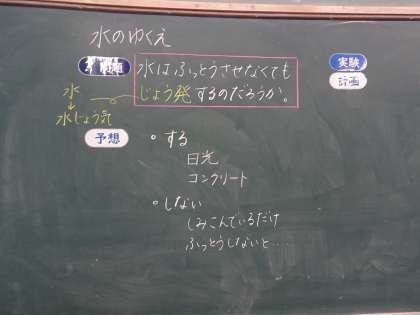 水のゆくえ
問題
水はふっとうさせなくても
じょう発するのだろうか。
水
↓
水じょう気
予想
。する
日光
コンクリート
。しない
しみこんでいるだけ
ふっとうしないと・・・・
実験
計画